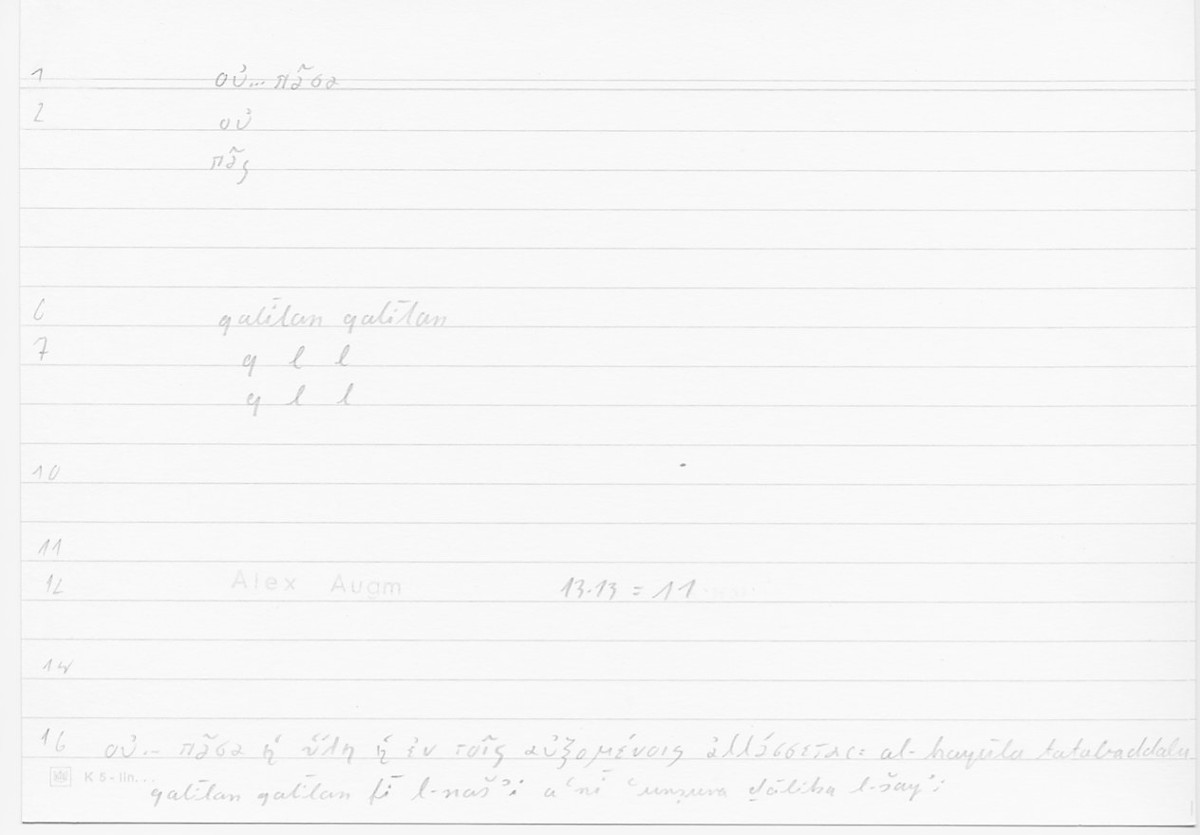 1 οὐ... πᾶσα
2 οὐ
πᾶς
6 qalīlan qalīlan
7 q l l
q l l
10
11
12 Alex Augm 13.13 = 11
14
16 οὐ... πᾶσα ἡ ὕλη ἡ ἐν τοῖς αὐξομένοις ἀλλάσσεται: al-hayūla tatabaddalu
K 5 - lin...
qalīlan qalīlan fī l-našʾi aʿnī ʿunṣura ḏālika l-šayʾi